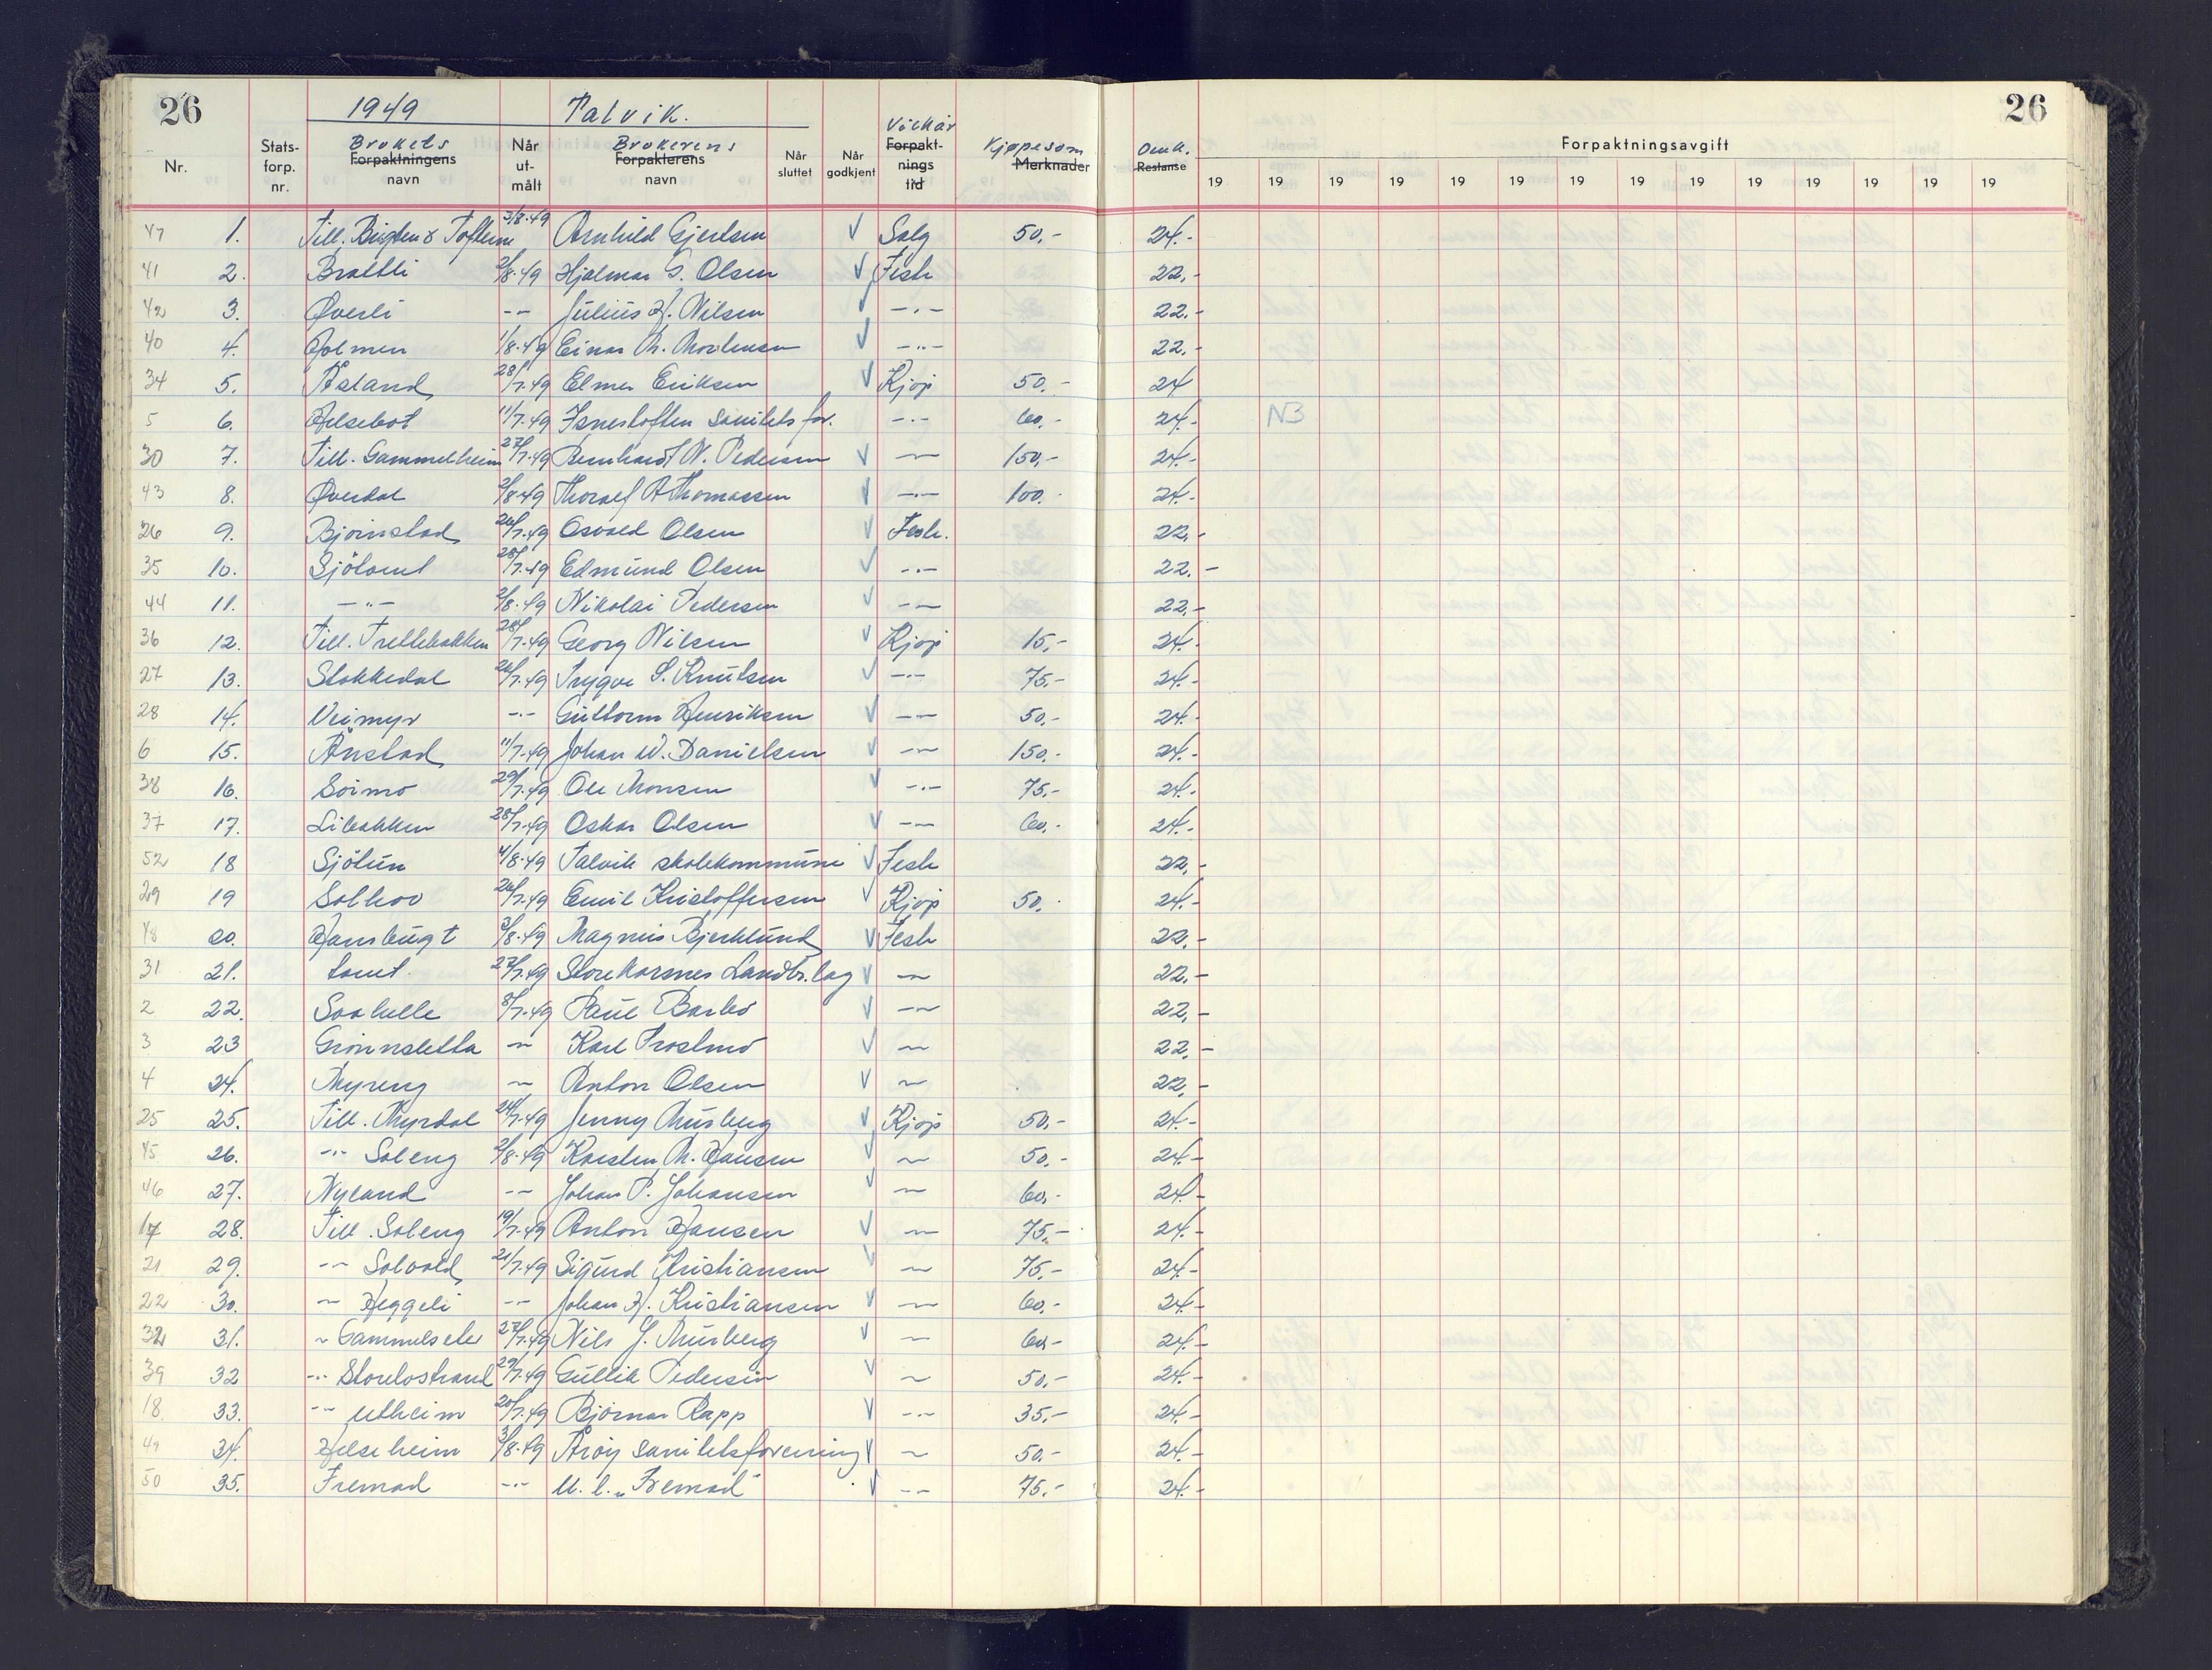 26 1949 Talvik. 26
Nr. Stats-forp. nr. Brukets Forpaktningens navn Når ut-målt Brukerens Forpakterens navn Når sluttet Når godkjent Vilkår Forpakt-nings tid Kjøpesum Merknader Omk. Restanse Forpaktningsavgift
19 19 19 19 19 19 19 19 19 19 19 19 19 19
47 1. Till. 3/8.49 Arnhild Gjertsen V Salg 50,- 24.-
41 2. Brattli 2/8.49 Hjalmar G. Olsen V Feste 22,-
42 3. Øverli -- Julius H. Nilsen V -.- 22.-
40 4. Holmen 1/8.49 Einar M. Mortensen V -..- 22,-
34 5. Åsland 28/7.49 Elmer Eriksen V Kjøp 50.- 24
5 6. Helsebot 11/7.49 Isnestoften sanitetsfor. -.- 60.- 24.- N3
30 7. Till. Gammelheim 27/7.49 Bernhardt N. Pedersen V -- 150,- 24.-
43 8. Øverdal 2/8.49 Thoralf A Thomassen V -.- 100. 24.-
26 9. Bjørnstad 26/7.49 Osvald Olsen V Feste. 22,-
35 10. Sjøtomt 28/7.49 Edmund Olsen V -.- 22.-
44 11. -"- 2/8.49 Nikolai Pedersen V -- 22,-
36 12. Till. Trellebakken 28/7.49 Georg Nilsen V Kjøp 15,- 24.-
27 13. Stokkedal 26/7.49 Trygve S. Knutsen V -.- 75.- 24.-
28 14. Veimyr -.- Guttorm Henriksen V -- 50,- 24.-
6 15. Ånstad 11/7.49 Johan W. Danielsen V -- 150.- 24.-
38 16. Soimo 29/7.49 Ole Monsen V -.- 75.- 24.-
37 17. Libakken 28/7.49 Oskar Olsen V -- 60.- 24.-
52 18 Sjøtun 4/8.49 Talvik skolekommune V Feste 22,-
29 19 Solhov 26/7.49 Emil Kristoffersen V Kjøp 50. 24.-
48 20. Hansbugt 3/8.49 Magnus Bjerklund V Feste 22.-
31 21. tomt. 27/7.49 Storekorsnes Landbr.lag V -- 22.-
2 22. 8/7.49 Paul Barbo V -- 22,-
3 23 Grønnsletta -- Karl Trostmo V -- 22,-
4 24. Myreng -- Anton Olsen V -- 22,-
25 25. Till. Myrdal 24/7.49 Jenny Murberg V Kjøp 50,- 24.-
45 26. -- Soleng 2/8.49 Karsten M. Hansen V -- 50.- 24.-
46 27. Nyland -- Johan P. Johansen V -- 60.- 24.-
17 28. Till. Soleng 19/7.49 Anton Hansen V -- 75.- 24.-
21 29. -- Solvold 21/7.49 Sigurd Kristiansen V -- 75.- 24.-
22 30. -- Heggeli -- Johan H. Kristiansen V -- 60.- 24.-
32 31. -- Gammelseter 27/7.49 Nils J. Murberg V -- 60- 24.-
39 32 -.- Storelvstrand 29/7.49 Gullik Pedersen V -- 50.- 24.-
18 33. -- Utheim 20/7.49 Bjørnar Rapp V -.- 35.- 24.-
49 34. Helseheim 3/8.49 Årøy sanitetsforening V -- 50.- 24.-
50 35. Fremad -.- U.l. "Fremad" V -- 75.- 24.-